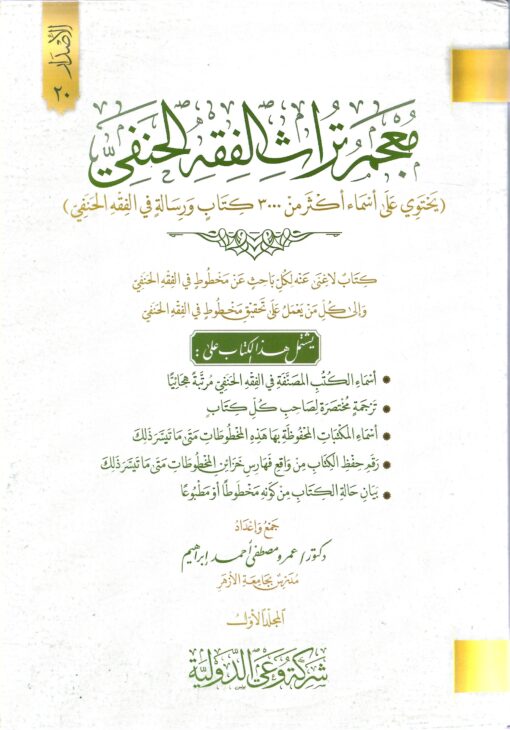 الإصدار
٢٠
مُعْجَمُ تُرَاثِ الفِقْهِ الحَنَفِيِّ
(يَحْتَوِي عَلَى أَسْمَاء أَكْثَر مِنْ ٣٠٠٠ كِتَابٍ وَرِسَالَةٍ فِي الفِقْهِ الحَنَفِيّ)
كِتَابٌ لَا غِنَى عَنْه لِكُلِّ بَاحِثٍ عَنْ مَخْطُوطٍ فِي الفِقْهِ الحَنَفِيّ
وَإِلَى كُلِّ مَنْ يَعْمَلُ عَلَى تَحْقِيقِ مَخْطُوطٍ فِي الفِقْهِ الحَنَفِيّ
يشتمل هذا الكتاب على :
أَسْمَاءِ الكُتُبِ المُصَنَّفَةِ فِي الفِقْهِ الحَنَفِيّ مُرَتَّبَةً هِجَائِيًّا
تَرْجَمَةٍ مُخْتَصَرَةٍ لِصَاحِبِ كُلِّ كِتَابٍ
أَسْمَاءِ المَكْتَبَاتِ المَحْفُوظَةِ بِهَا هَذِهِ المَخْطُوطَاتِ مَتَى مَا تَيَسَّرَ ذَلِكَ
رَقَمِ حِفْظِ الكِتَابِ مِنْ وَاقِعِ فَهَارِسِ خَزَائِنِ المَخْطُوطَاتِ مَتَى مَا تَيَسَّرَ ذَلِكَ
بَيَانِ حَالَةِ الكِتَابِ مِنْ كَوْنِهِ مَخْطُوطًا أَوْ مَطْبُوعًا
جَمْعُ وَإِعْدَادُ
دكتور/ عمرو مصطفى أحمد إبراهيم
مُدَرِّسٌ بِجَامِعَةِ الأَزْهَرِ
المجلد الأول
شَرِكَةُ وَعْيِ الدَّوْلِيَّة